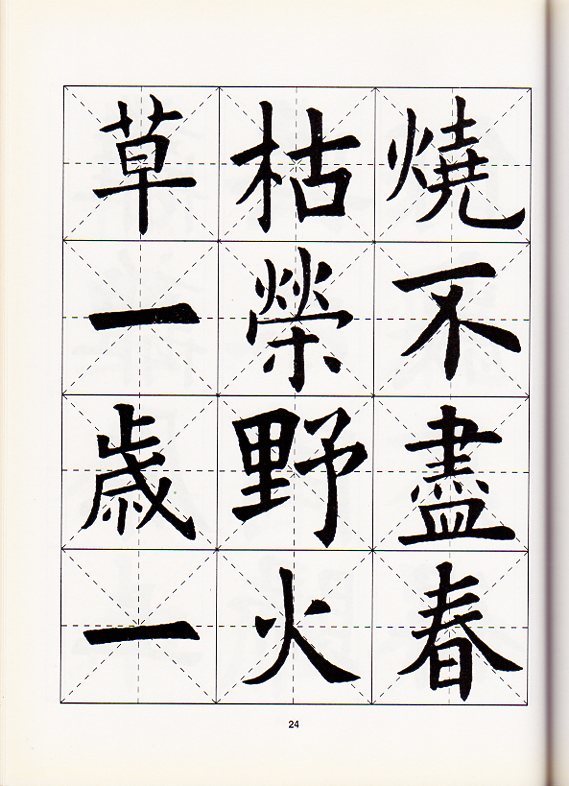 草一歳一
枯榮野火
燒不盡春
24